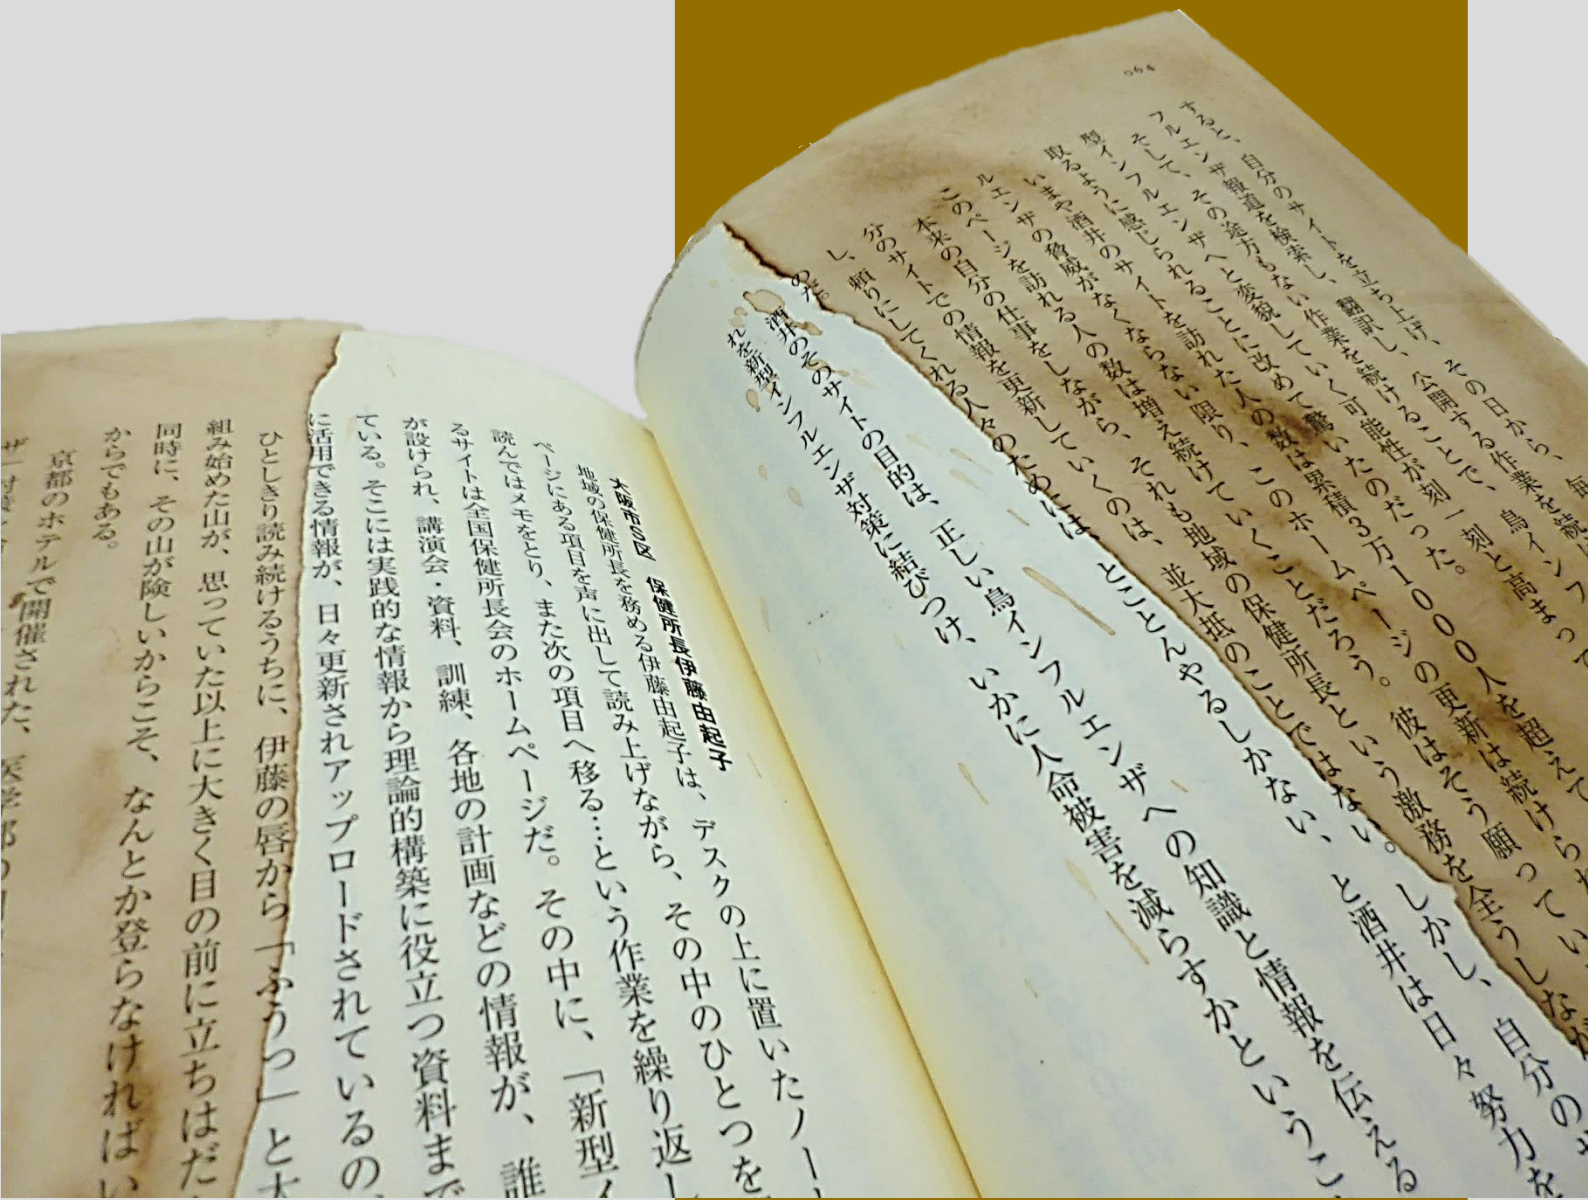 564
すると、自分のサイトを立ち上げ、その日から、毎
フルエンザ報道を検索し、翻訳し、公開する作業を続け
そして、その途方もない作業を続けることで、鳥インフ
型インフルエンザへと変貌していく可能性が刻一刻と高まって
取るように感じられることに改めて驚いたのだった。
いまや酒井のサイトを訪れた人の数は累積3万1000人を超えて
ルエンザの脅威がなくならない限り、このホームページの更新は続けられ
このページを訪れる人の数は増え続けていくことだろう。彼はそう願ってい
本来の自分の仕事をしながら、それも地域の保健所長という激務を全うしなが
分のサイトでの情報を更新していくのは、並大抵のことではない。しかし、自分のサ
し、頼りにしてくれる人々のためには、とことんやるしかない、と酒井は日々努力を
のだ。
酒井のそのサイトの目的は、正しい鳥インフルエンザへの知識と情報を伝える
れを新型インフルエンザ対策に結びつけ、いかに人命被害を減らすかというこ
大阪市S区 保健所長伊藤由起子
地域の保健所長を務める伊藤由起子は、デスクの上に置いたノー
ページにある項目を声に出して読み上げながら、その中のひとつを
読んではメモをとり、また次の項目へ移る…という作業を繰り返し
るサイトは全国保健所長会のホームページだ。その中に、「新型イ
が設けられ、講演会・資料、訓練、各地の計画などの情報が、誰
ている。そこには実践的な情報から理論的構築に役立つ資料まで
に活用できる情報が、日々更新されアップロードされているの
ひとしきり読み続けるうちに、伊藤の唇から「ふうっ」と大
組み始めた山が、思っていた以上に大きく目の前に立ちはだ
同時に、その山が険しいからこそ、なんとか登らなければい
からでもある。
京都のホテルで開催された、医学部の